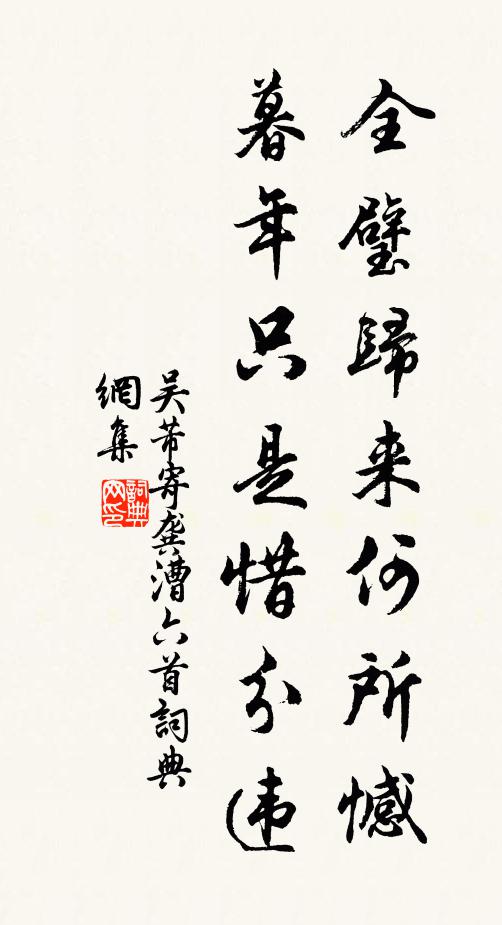 全璧歸来何所憾
暮年只是惜分违
吴芾寄龚漕六首詞典
網集
詞典网印